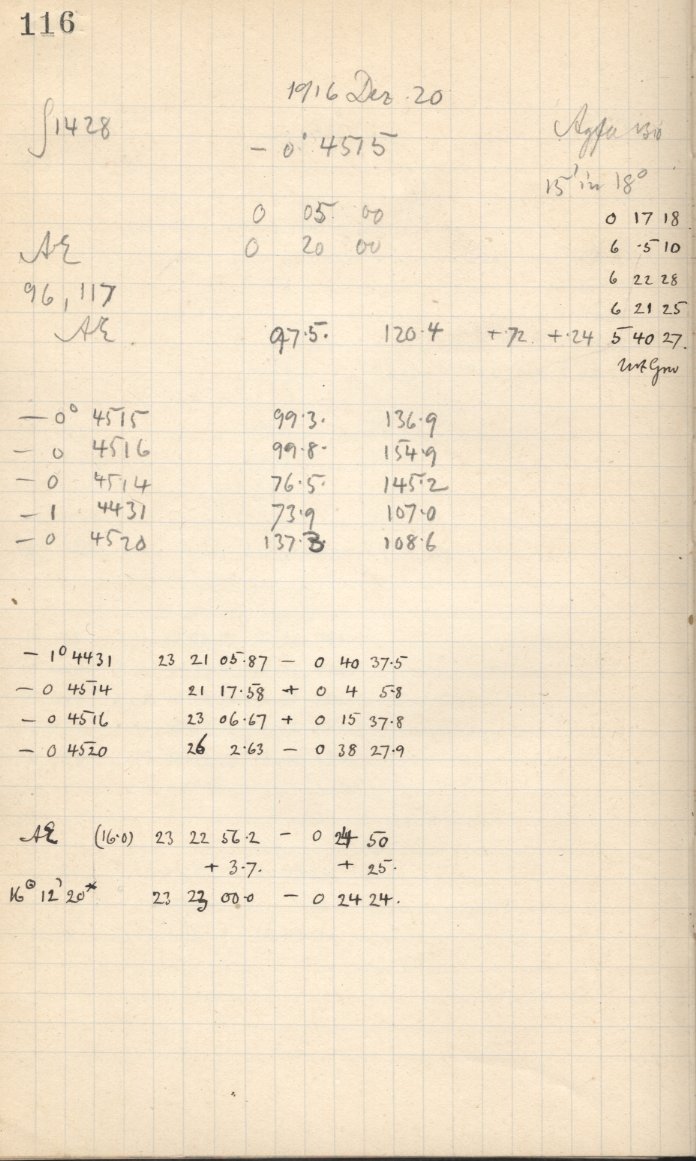 116
1916 Dez. 20
1428
Agfa
- 0° 4515
15' in 18°
0 05 00
0 17 18
0 20 00
6 ·5 10
AE
6 22 28
96, 117
6 21 25
AE. 97·5· 120·4 +·72 +·24 5 40 27.
mt Grw
- 0° 4515 99·3· 136·9
- 0 4516 99·8· 154·9
- 0 4514 76·5· 145·2
- 1 4431 73·9 107·0
- 0 4520 137·3· 108·6
- 1° 4431 23 21 05·87 - 0 40 37·5
- 0 4514 21 17·58 + 0 4 5·8
- 0 4516 23 06·67 + 0 15 37·8
- 0 4520 26 2·63 - 0 38 27·9
AE (16·0) 23 22 56·2 - 0 24 50
+ 3·7. + 25.
12' 20* 23 23 00·0 - 0 24 24.